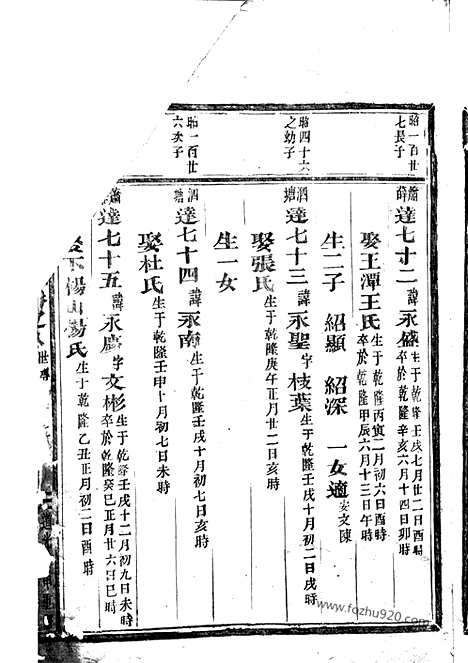 昭一百世
七長子
蕭
薛
達七十二諱永盛生于乾隆壬戌七月廿二日酉時
卒於乾隆辛亥六月十四日卯時
娶王潭王氏生于乾隆丙寅二月初六日酉時
卒於乾隆甲辰六月十三日午時
生二子 紹顯 紹深 一女適安文陳
昭四十六
之幼子
泗
塘
達七十三諱永聖字枝葉生于乾隆壬戌十月初二日戌時
娶張氏生于乾隆庚午正月廿二日亥時
生一女
昭一百世
六次子
泗
塘
達七十四諱永南生于乾隆壬戌十月初七日亥時
娶杜氏生于乾隆壬申十月初七日未時
達七十五諱永慶字文彬生于乾隆壬戌十二月初九日未時
卒於乾隆癸巳正月廿六日巳時
楊氏生于乾隆乙丑正月初二日酉時
世
www.fozhu920.com